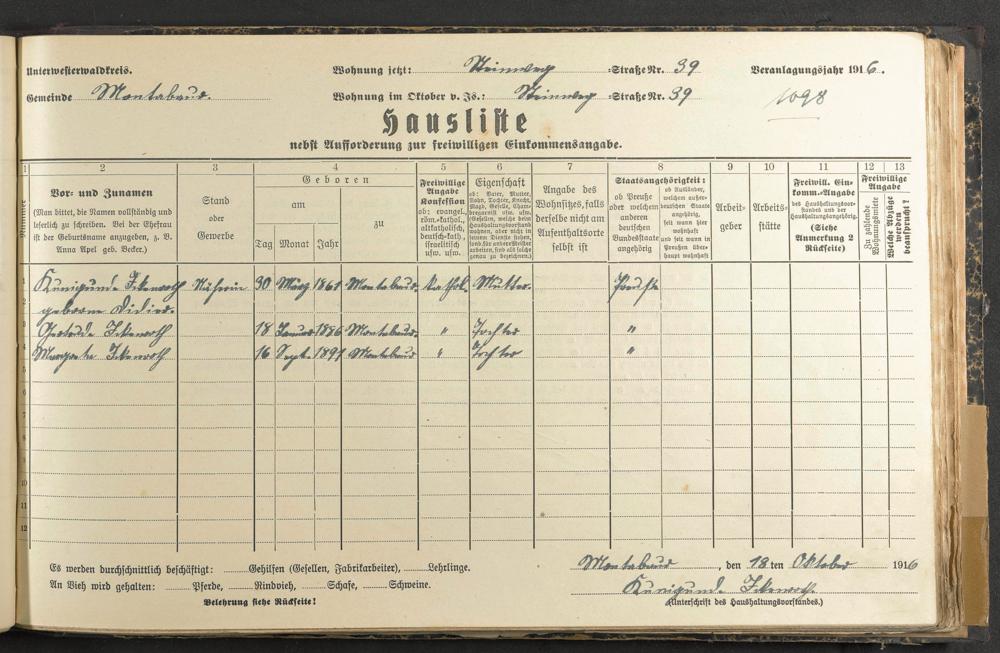 Unterwesterwaldkreis. Wohnung jetzt: Steinweg -Straße Nr. 39 Veranlagungsjahr 1916.
Gemeinde Montabaur. Wohnung im Oktober v. Js.: Steinweg -Straße Nr. 39 1098
Hausliste
nebst Aufforderung zur freiwilligen Einkommensangabe.
1 2 3 4 5 6 7 8 9 10 11 12 13
Nummer
Vor- und Zunamen
(Man bittet, die Namen vollständig und
leserlich zu schreiben. Bei der Ehefrau
ist der Geburtsname anzugeben, z. B.
Anna Apel geb. Becker.)
Stand
oder
Gewerbe
Geboren
am
Tag Monat Jahr
zu
Freiwillige
Angabe
Konfession
ob: evangel.,
röm.-kathol.,
altkatholisch,
deutsch-kath.,
israelitisch
usw. usw.
Eigenschaft
ob: Vater, Mutter,
Sohn, Tochter, Knecht,
Magd, Geselle, Cham-
bregarnist usw. usw.
(Gesellen, welche beim
Haushaltungsvorstand
wohnen, aber nicht in
seinen Diensten stehen,
sond. für andere Meister
arbeiten, sind als solche
genau zu bezeichnen.)
Angabe des
Wohnsitzes, falls
derselbe nicht am
Aufenthaltsorte
selbst ist
Staatsangehörigkeit:
ob Preuße
oder welchem
anderen
deutschen
Bundesstaate
angehörig
ob Ausländer,
welchem außer-
deutschen Staate
angehörig,
seit wann hier
wohnhaft
und seit wann in
Preußen über-
haupt wohnhaft
Arbeit-
geber
Arbeits-
stätte
Freiwill. Ein-
komm.-Angabe
des Haushaltungsvor-
standes und der
Haushaltungsangehörig.
(Siehe
Anmerkung 2
Rückseite)
Freiwillige
Angabe
Zu zahlende
Wohnungsmiete
Welche Abzüge
werden
beansprucht?
1 Kunigunde Ickenroth Näherin 30 März 1861 Montabaur. Kathol. Mutter Preuße
2 geborne Didier.
3 Gertrude Ickenroth 18 Januar 1886 Montabaur. " Tochter "
4 Margrete Ickenroth 16 Sept. 1891 Montabaur " Tochter "
5
6
7
8
9
10
11
12
Es werden durchschnittlich beschäftigt: Gehilfen (Gesellen, Fabrikarbeiter), Lehrlinge.
An Vieh wird gehalten: Pferde, Rindvieh, Schafe, Schweine.
Belehrung siehe Rückseite!
Montabaur, den 18 ten Oktober 1916
Kunigunde Ickenroth.
(Unterschrift des Haushaltungsvorstandes.)